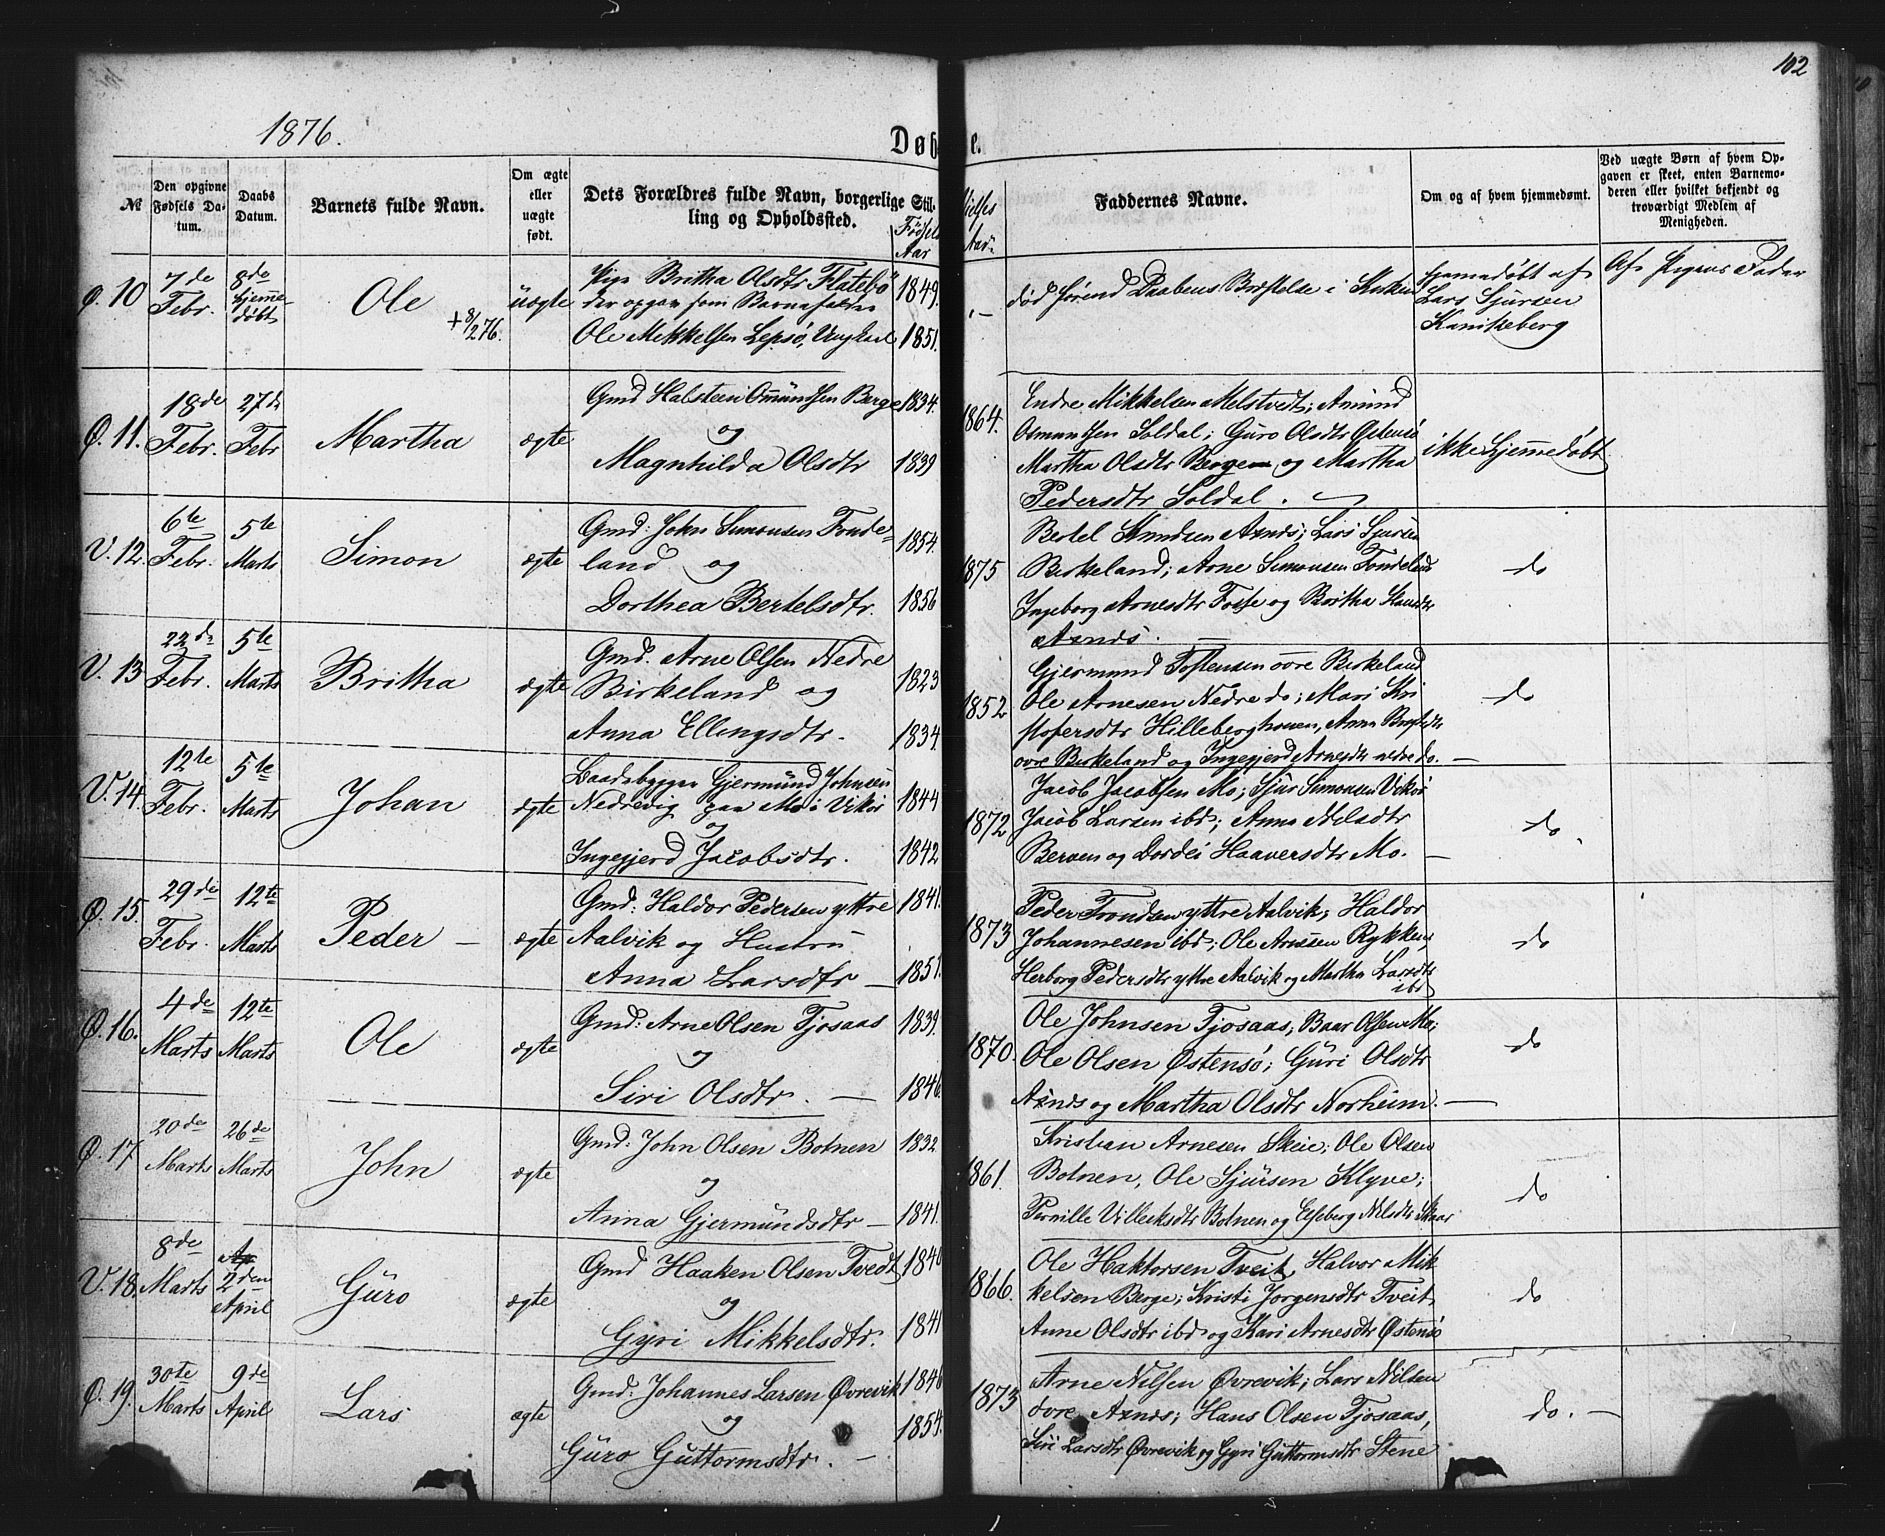 102
1876.
Døbte.
№
Den opgivne Fødsels Datum.
Daabs Datum.
Barnets fulde Navn.
Om ægte eller uægte født.
Dets Forældres fulde Navn, borgerlige Stilling og Opholdssted.
Fødsels Aar
Vielses Aar.
Faddernes Navne.
Om og af hvem hjemmedømt.
Ved uægte Børn af hvem Opgaven er skeet, enten Barnemoderen eller hvilket bekjendt og troværdigt Medlem af Menigheden.
Ø. 10
7de Febr.
8de hjemmedøbt
Ole
+ 8/2 76.
uægte
Pige Britha Olsdtr Flatebø
der opgav som Barnefader
Ole Mikkelsen Lepsø, Ungkarl
1849.
1851.
død førend Daabens Bræftelse i Kirken
hjemmedøbt af
Lars Sjursen
Kanikeberg
Af Pigens Fader
Ø. 11.
18de Febr.
27de Febr
Martha
ægte
Gmd Halsteen Omundsen Berge
og
Magnhilda Olsdtr
1834.
1839
1864.
Endre Mikkelsen Melstvedt; Amund
Osmundsen Soldal; Guro Olsdtr Østensø
Martha Olsdtr Bergem og Martha
Pedersdtr Soldal.
ikke hjemmedøbt
V. 12.
6te Febr.
5te Marts
Simon
ægte
Gmd: John Simonsen Fondeland
og
Dorthea Bertelsdtr.
1854.
1856
1875
Bertel Knudsen Axnes; Lars Sjursen
Birkeland; Arne Simonsen Fondeland
Ingeborg Arnesdtr Fosse og Britha
Axnes.
do
V. 13
22de Febr.
5te Marts
Britha
ægte
Gmd. Arne Olsen Nedre
Birkeland og
Anna Ellingsdtr.
1823
1834
1852
Gjermund Tostensen øvre Birkeland
Ole Arnesen Nedre do; Mari Kri
stofersdtr Hilleberghouen, Anna
øvre Birkeland og Ingegjerd Arnesdtr nedre do.
do
V. 14.
12te Febr.
5te Marts
Johan
ægte
Baadsbygger Gjermund Johnsen
Nedrevig paa Mo i Vikør
og
Ingegjerd Jacobsdtr.
1844
1842
1872
Jacob Jacobsen Mo; Sjur Simonsen Vikør
Jacob Larsen ibd; Anna Nilsdtr
Berven og Dordei Haaversdtr Mo.
do
Ø. 15.
29de Febr.
12te Marts
Peder
ægte
Gmd: Haldor Pedersen yttre
Aalvik og Hustru
Anna Larsdtr
1841.
1851.
1873
Peder Trondsen yttre Aalvik; Haldor
Johannesen ibd; Ole Arnesen Rykken,
Herborg Pedersdtr yttre Aalvik og Martha Larsdtr
ibd
do
Ø. 16.
4de Marts
12te Marts
Ole
ægte
Gmd: Arne Olsen Tjosaas
og
Siri Olsdtr.
1839.
1846
1870.
Ole Johnsen Tjosaas, Baar Olsen Mo;
Ole Olsen Østensø; Guri Olsdtr
Axnes og Martha Olsdtr Norheim.
do
Ø. 17
20de Marts
26de Marts
John
ægte
Gmd: John Olsen Botnen
og
Anna Gjermundsdtr
1832
1841.
1861.
Kristian Arnesen Skeie; Ole Olsen
Botnen, Ole Sjursen Klyve;
Pernille Villecksdtr Botnen og Elseberg Nilsdtr Skaar
do
V. 18.
8de Marts
2den April
Guro
ægte
Gmd Haaken Olsen Tvedt
og
Gyri Mikkelsdtr.
1840
1841
1866.
Ole Haktorsen Tveit, Halvor Mik
kelsen Berge; Kristi Jorgensdtr Tveit,
Anne Olsdtr ibd og Kari Arnesdtr Østensø
do
Ø. 19.
30te Marts
9de April
Lars
ægte
Gmd: Johannes Larsen Øvrevik
og
Guro Guttormsdtr.
1846
1854.
1873
Arne Nilsen Øvrevik; Lars Nilsen
øvre Axnes; Hans Olsen Tjosaas,
Siri Larsdtr Øvrevik og Gyri Guttormsdtr Stene
do.